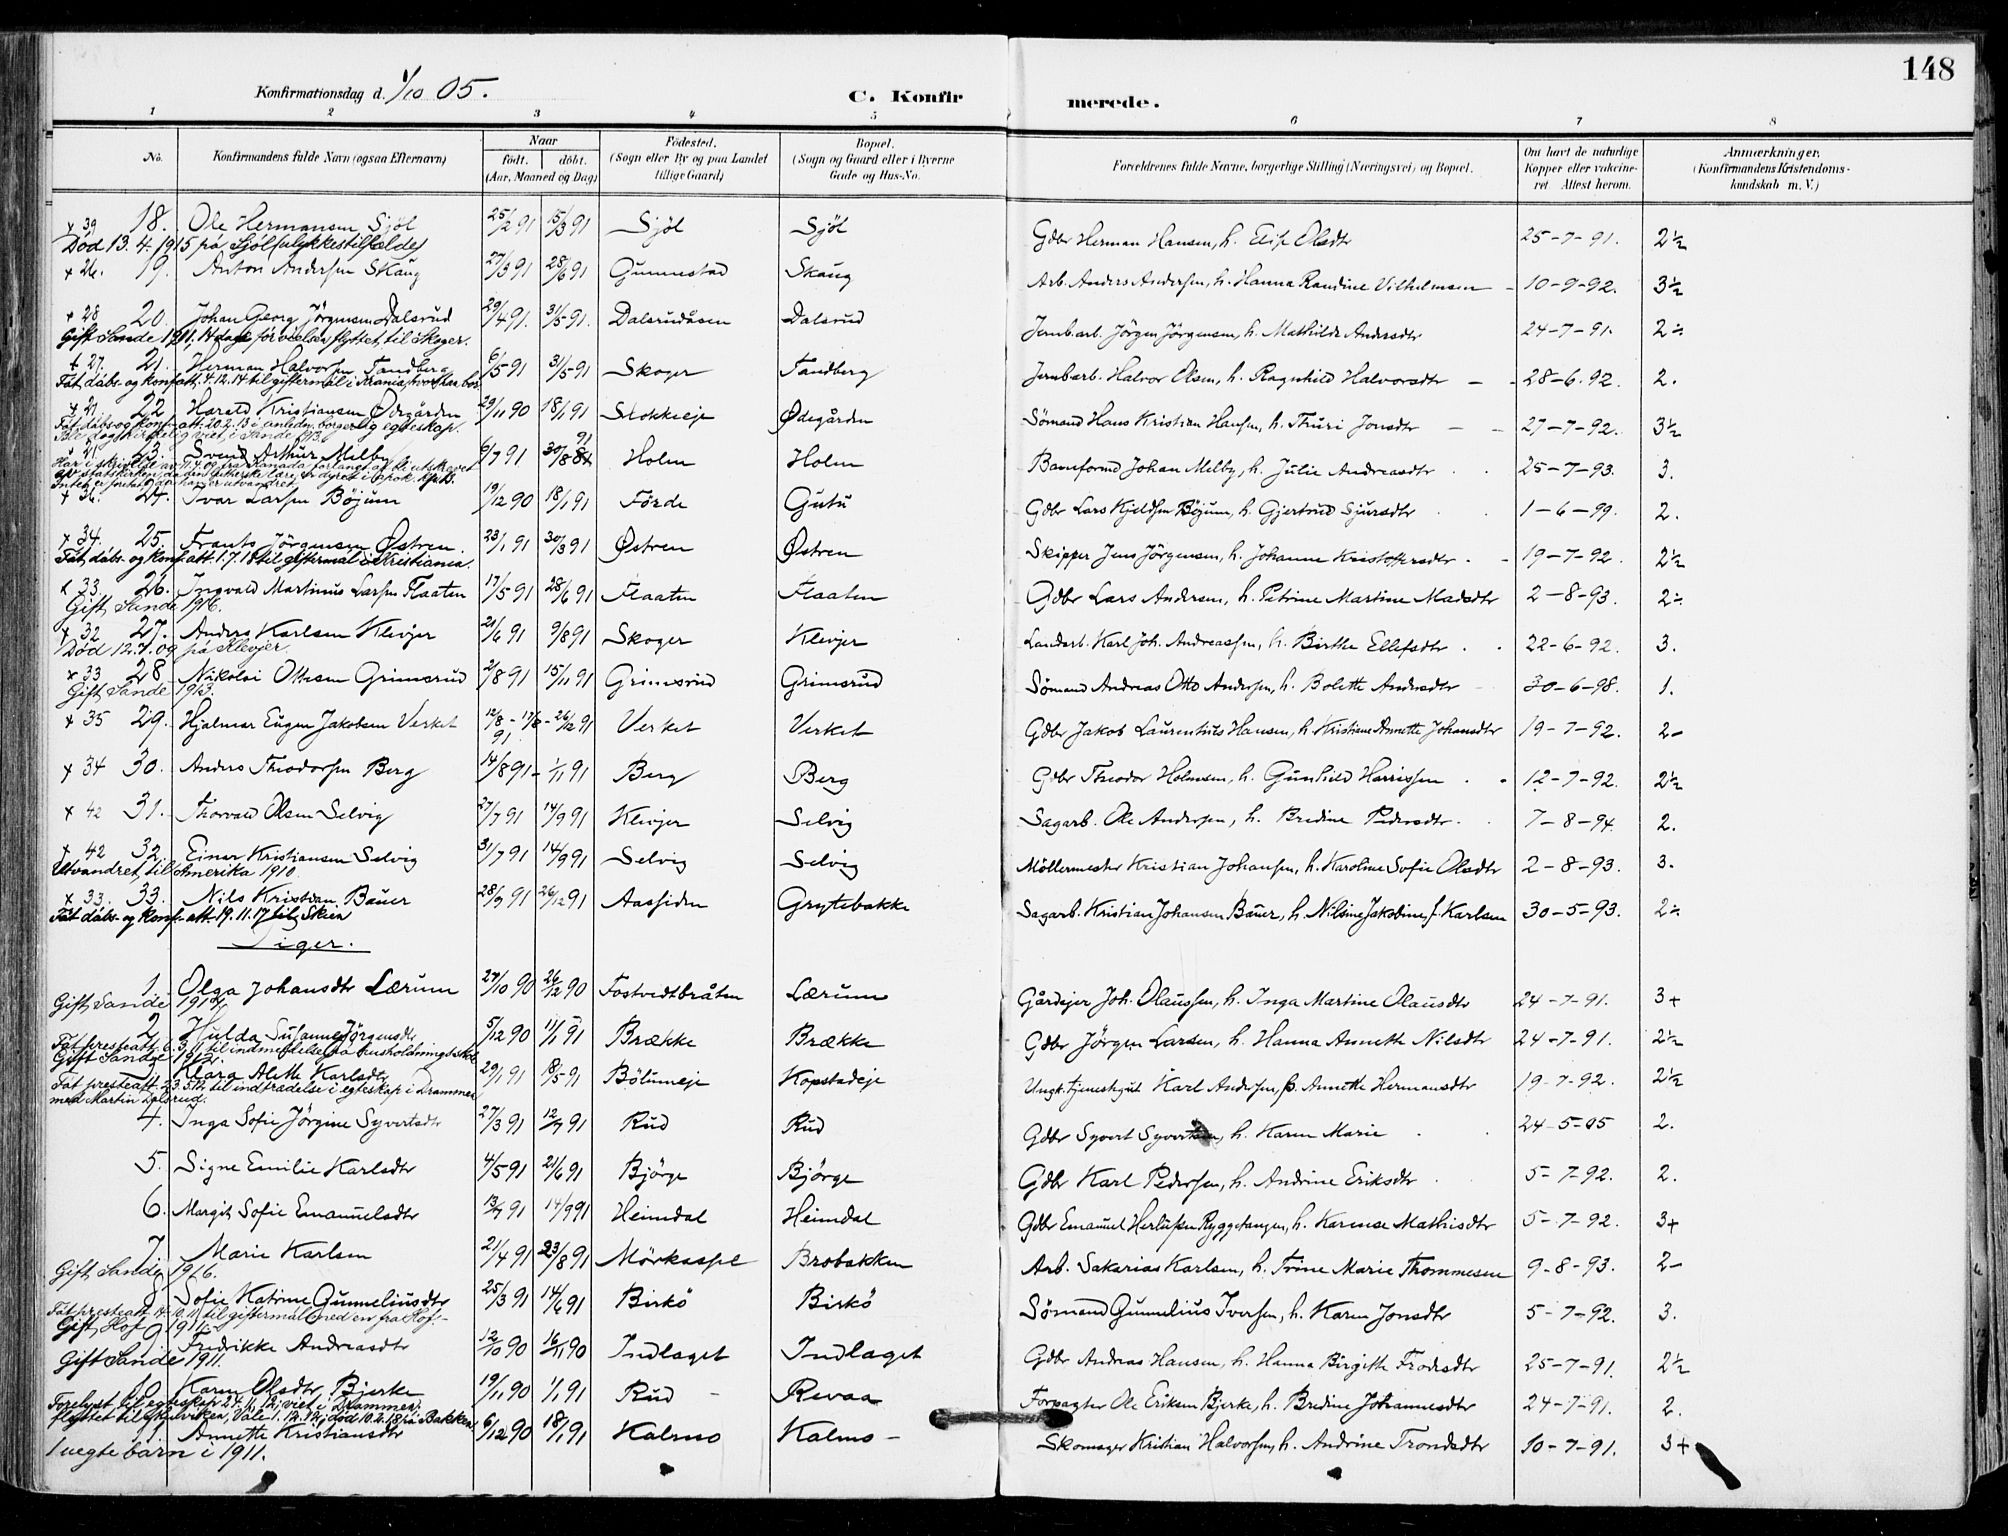 148
Konfirmationsdag d. 1/10 05.
C. Konfirmerede.
1 2 3 4 5 6 7 8
No. Konfirmandens fulde Navn (ogsaa Efternavn) Naar født. døbt. (Aar, Maaned og Dag) Fødested. (Sogn eller By og paa Landet tillige Gaard) Bopæl. (Sogn og Gaard eller i Byerne Gade og Hus-No. Forældrenes fulde Navne, borgerlige Stilling (Næringsvei) og Bopæl. Om havt de naturlige Kopper eller vakcineret. Attest herom. Anmærkninger. (Konfirmandens Kristendomskundskab m. V.)
x 39 18. Ole Hermansen Sjöl 25/2 91 15/3 91 Sjöl Sjöl Gdbr Herman Hansen, h. Elise Olsdtr 25-7-91. 2½
Död 13.4.1915 på Sjöl (ulykkestilfælde)
x 26. 19. Anton Andersen Skaug 27/3 91 28/6 91 Gunnestad Skaug Arb. Anders Andersen, h. Hanna Randine Vilhelmsen 10-9-92. 3½
x 28 20. Johan Georg Jörgensen Dalsrud 29/4 91. 31/5 91. Dalsrudåsen Dalsrud Jernb.arb. Jörgen Jörgensen, h. Mathilde Andersdtr 24-7-91. 2÷
Gift Sande 1911, 14 dage før vielsen flyttet til Skoger.
x 27. 21. Herman Halvorsen Tandberg 6/5 91 31/5 91 Skoger Tandberg Jernb.arb. Halvor Olsen, h. Ragnhild Halvorsdtr 28-6-92. 2.
Fåt dåbs- og konf.att. 4.12.14 til giftermål i Krania, hvor han bor.
x 21. 22 Harald Kristiansen Ödegården 29/11 90 18/1 91 Slokkeeje Ödegården Sömand Hans Kristian Hansen, h. Thuri Jonsdtr 27-7-92. 3½
Fåt dåbs og konf-att. 20.2.13 i anledn. borgerlig egteskap.
Ble dog kirkelig viet, i Sande 1913.
x 21. 23. Svend Arthur Milby 6/7 91 30/8 91 Holm Holm Baneformd Johan Melby, h. Julie Andreasdtr 25-7-93. 3.
x 36. 24. Ivar Larsen Böjum 19/12 90 18/1 91 Förde Gutu Gdbr Lars Kjeldsen Böjum, h. Gjertrud Sjursdtr 1-6-99. 2.
x 34. 25. Frants Jörgensen Östren. 23/1 91 30/3 91 Östren Östren Skipper Jens Jörgensen, h. Johanne Kristoffersdtr 19-7-92. 2½
Fåt dåbs- og konf.att. 1.7.18 til giftermål i Kristiania.
x 33. 26. Ingvald Martinus Larsen Flaaten 17/5 91 28/6 91 Flaaten Flaaten Gdbr Lars Andersen, h. Petrine Martine Madsdtr 2-8-93. 2÷
Gift, Sande 1916.
x 32 27. Anders Karlsen Klevjer 21/6 91 9/8 91 Skoger Klevjer Landarb. Karl Joh. Andreassen, h. Birthe Ellefsdtr 22-6-92. 3.
Död 12.7.09 på Klevjer.
x 33 28 Nikolai Ottesen Grimsrud 2/8 91 15/11 91 Grimsrud Grimsrud Sömand Andreas Otto Andersen, h. Bolette Andersdtr 30-6-98. 1.
Gift, Sande 1913.
x 35 29. Hjalmar Eugen Jakobsen Verket 12/8 - 17/8 - 26/12 91 91 Verket Verket Gdbr Jakob Laurentius Hansen, h. Kristiane Annette Johansdtr 19-7-92. 2-
x 34 30. Anders Theodorsen Berg 14/8 91 - 1/11 91 Berg Berg Gdbr Theodor Holmsen, h. Gunhild Harrissen 12-7-92. 2½
x 42 31. Thorvald Olsen Selvig 27/7 91 14/9 91 Klevjer Selvig Sagarb. Ole Andersen, h. Bredine Pedersdtr. 7-8-94. 2.
x 42 32 Einar Kristiansen Selvig 31/7 91 14/9 91 Selvig Selvig Möllermester Kristian Johansen, h. Karoline Sofie Olsdtr 2-8-93. 3.
Utvandret, til Amerika 1910.
x 33. 33. Nils Kristian Bauer 28/9 91 26/12 91 Aassiden Grytebakke Sagarb. Kristian Johansen Bauer, h. Nilsine Jakobine f. Karlsen 30-5-93. 2÷
Fåt dåbs- og konf-att. 19.11.17 til Skien
Piger.
1. Olga Johansdtr Lærum 27/10 90 26/12 90 Tostvedtbråten Lærum Gårdejer Joh. Olaussen, h. Inga Martine Olausdtr 24-7-91. 3+
Gift, Sande 1914.
2. Hulda Susanne Jörgensdtr 5/12 90 11/1 91 Brække Brække Gdbr Jörgen Larsen, h. Hanna Annette Nilsdtr 24-7-91. 2½
Gift Sande 1912.
Klara Alette Karlsdtr 29/1 91 18/5 91 Bölumeje Kopstadeje Ungk. tjenestegut Karl Andersen, p. Annette Hermansdtr 19-7-92. 2½
Fåt presteatt. 23.5.14 til indtrædelse i egteskap i Drammen
med Martin Dalsrud.
4. Inga Sofie Jörgine Syvertsdtr 27/3 91 12/7 91 Rud Rud Gdbr Syvert Syvertsen, h. Karen Marie 24-5-05 2.
5. Signe Emilie Karlsdtr 4/5 91 21/6 91 Björge Björge Gdbr Karl Pedersen, h. Andrine Eriksdtr 5-7-92. 2.
6. Margit Sofie Emanuelsdtr 13/7 91 14/9 91 Heimdal Heimdal Gdbr Emanuel Herlufsen Ryggetangen, h. Karense Mathisdtr 5-7-92. 3+
7 Marie Karlsen 21/4 91 23/8 91 Mörkasspl Brobakken Arb. Sakarias Karlsen, h. Trine Marie Thommesen 9-8-93. 2-
Gift, Sande 1916.
8 Sofie Katrine Gunneliusdtr 25/3 91 14/6 91 Birkö Birkö Sömand Gunnelius Iversen, h. Karen Jonsdtr 5-7-92. 3.
Fåt presteatt. 14.10.11 til giftermål med en fra Hof.-
Gift, Hof 1911.-
9 Fredrikke Andreasdtr 12/10 90 16/11 90 Indlaget Indlaget Gdbr Andreas Hansen, h. Hanna Birgitte Frodesdtr 25-7-91. 2½
Gift Sande 1911.
10 Karen Olsdtr Bjerke 19/11 90 1/1 91 Rud Revaa Forpagter Ole Eriksen Bjerke, h. Bredine Johannesdtr 24-7-91. 2.
11 Annette Kristiansdtr 6/12 90 18/1 91 Kalmo Kalmo Skomager Kristian Halvorsen, h. Andrine Trondsdtr 10-7-91. 3+
1 uegte barn i 1911.